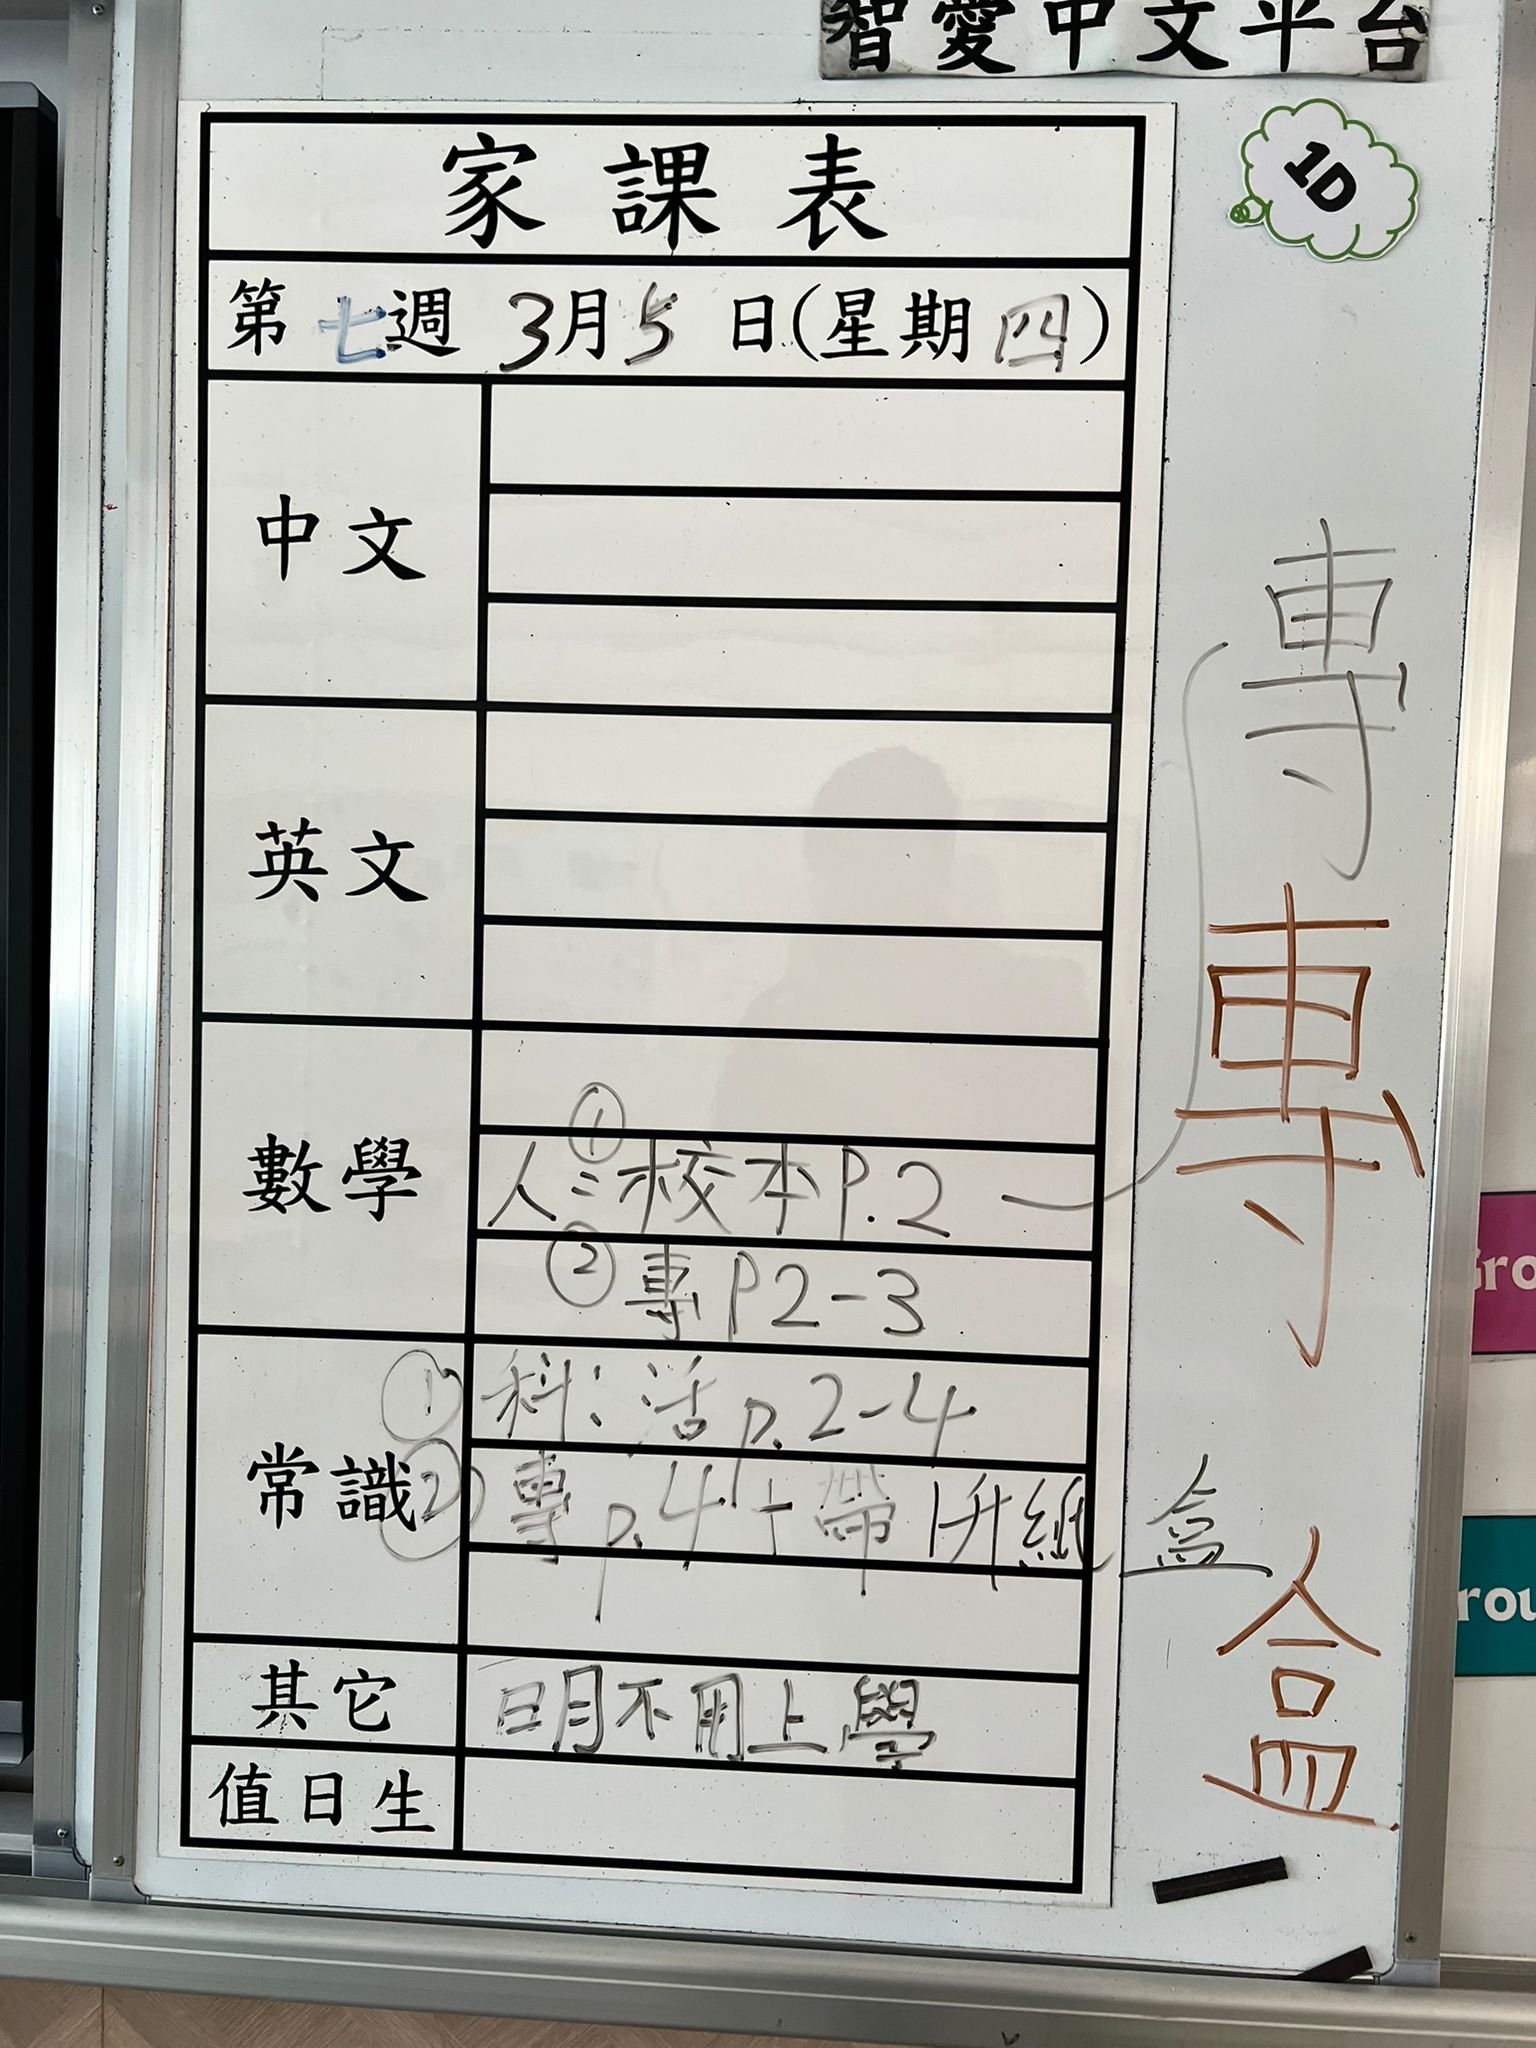 智愛中文平台
1D
家課表
第七週 3月5日(星期四)
中文
英文
數學
人：①校本P.2
②專P2-3
常識
①科：活p.2-4
②專p.4+帶1升紙盒
其它
明不用上學
值日生
專
專
盒